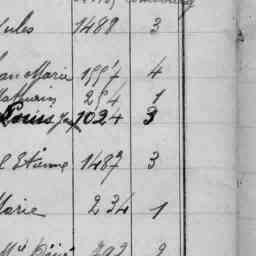 Jules 1488 3
Jean Marie 1997 4
Mathurin 254 1
Louis 1024 3
Etienne 1487 3
Marie 234 1
292 2